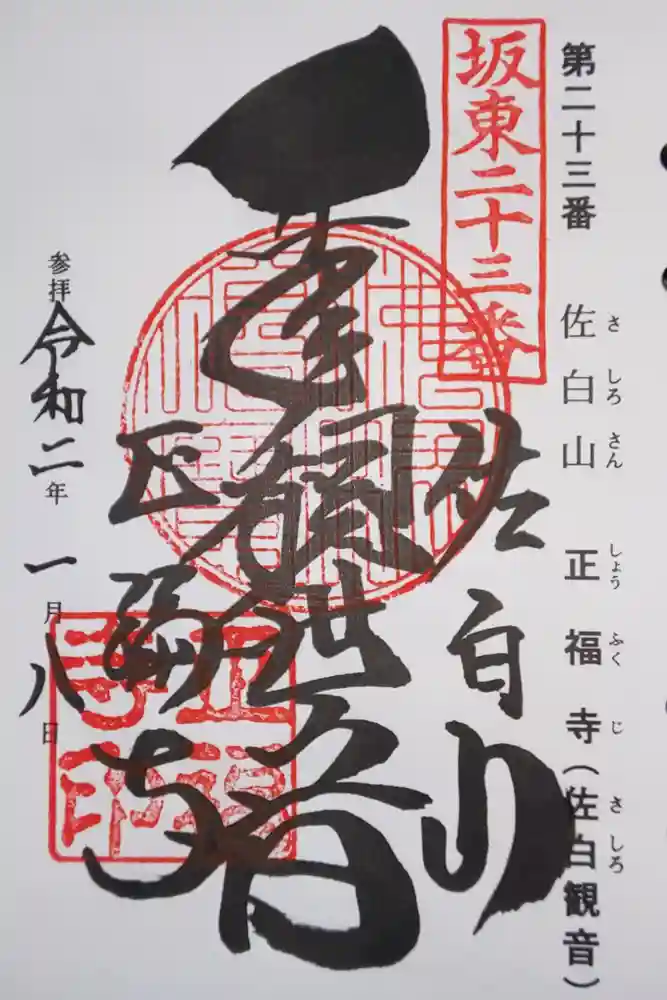 第二十三番 佐白山 正福寺(佐白観音)
さ しろ さん しょう ふく じ さ しろ
坂東二十三番
佐白山
正福寺
正福寺印
参拝令和二年一月八日